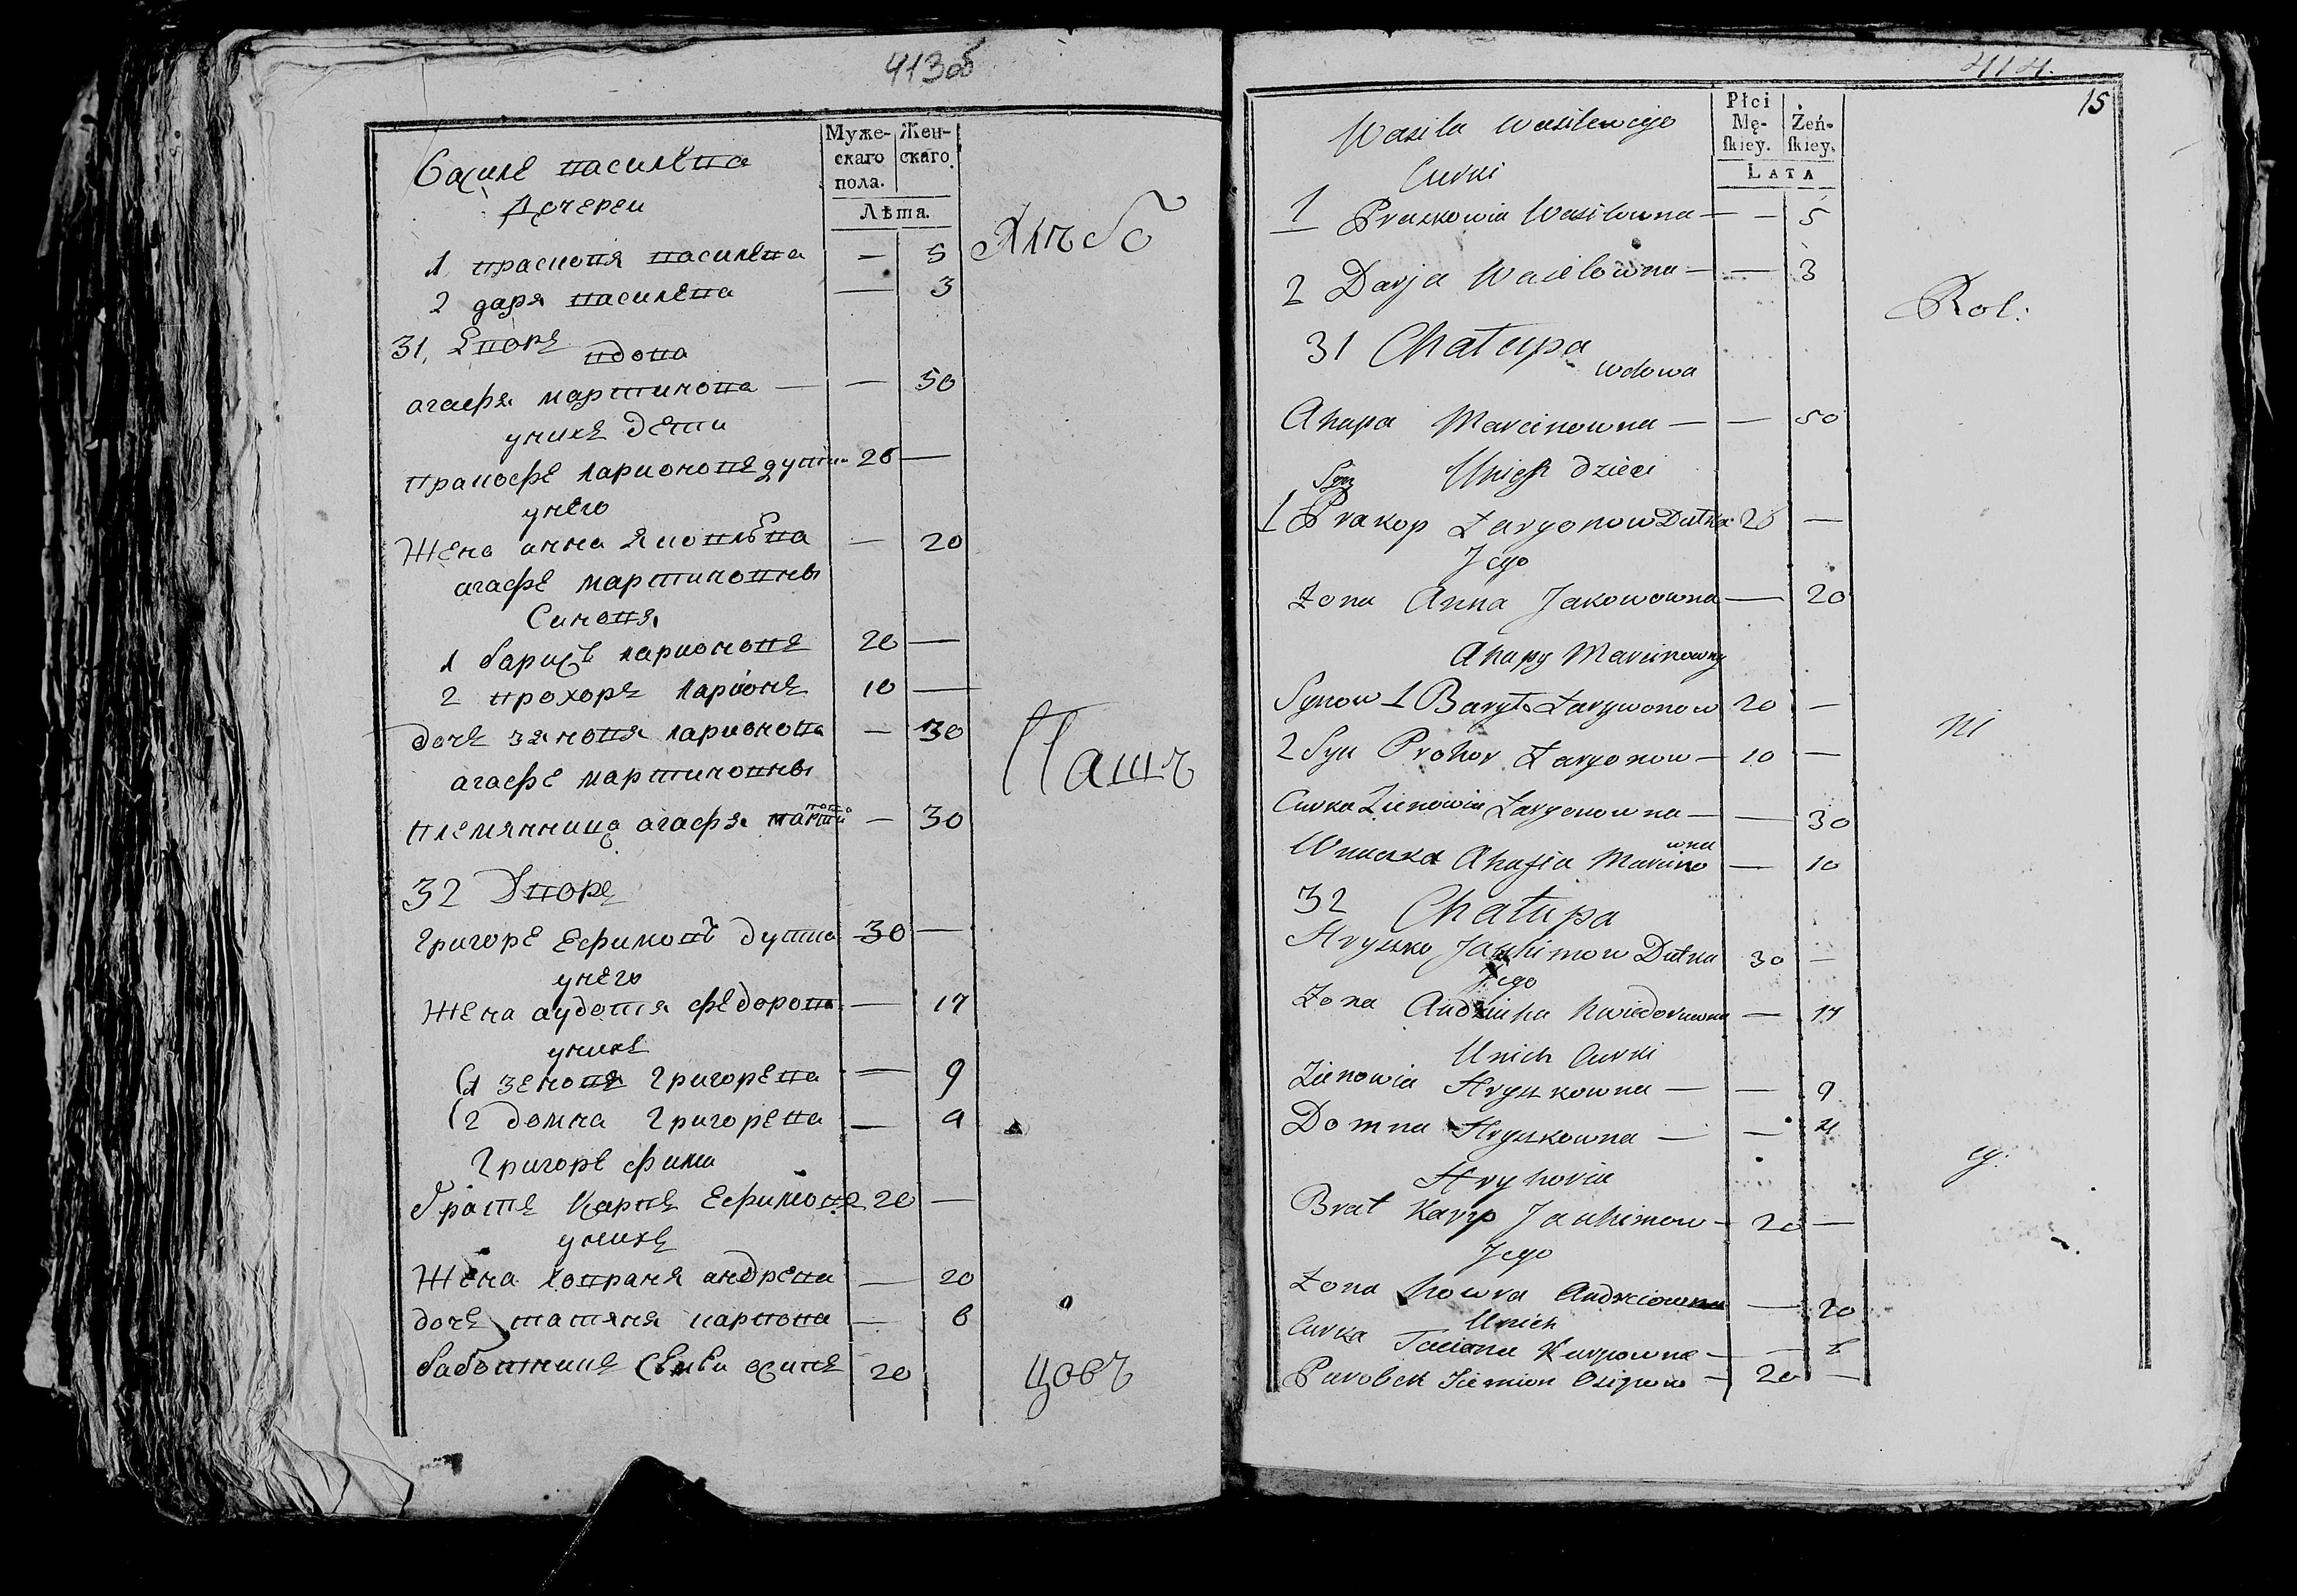 413об
Муже-
скаго
пола.
Жен-
скаго.
Лѣта.
василе василева
Дочереи
1 прасковя василева — 5
2 даря василева — 3
31, Дворе
вдова
агафя мартинова — — 50
унихе дети
пракофе ларионове дутка 26 —
унего
Жена анна яковлева — 20
агафе мартиновны
Синовя
1 ларионове 20 —
2 прохоре ларионе 10 —
доче зяновя ларионова — 30
агафе мартиновны
племянница агафя мартинова — 30
32 Дворе
Григоре Ефимовъ дутка 30 —
унего
Жена аудотя федорова — 17
унихе
1 зеновя Григорева — 9
2 домна Григорева — 4
Григоре фима
брате Карпе Ефимове 20 —
унихе
Жена ховраня андрева — 20
доче татяня карпова — 6
осипе 20
Хлѣб
Паш
цовъ
414.
15
Płci
Mę-
skiey.
Żeń-
skiey.
LATA
Wasila Wasilewego
Curki
1 Praskowia Wasilowna — — 5
2 Darja Wasilowna — — 3
31 Chatupa
wdowa
Ahapa Marcinowna — — 50
Unich dzieci
Syn
1 Prakop Łaryonow Dutka 26 —
Jego
Żona Anna Jakowowna — 20
Ahapy Marcinowny
Synow 1 Łarywonow 20 —
2 Syn Prohor Łaryonow — 10 —
Curka Zienowia Łaryonowna — — 30
Wnuczka Ahafia Marcinowna — 10
32 Chatupa
Hryszko Jachimow Dutka 30 —
Jego
Żona Chwiedorowna — 17
Unich Curki
Zienowia Hryszkowna — — 9
Domna Hryszkowna — — 4
Hryhoria
Brat Karp Jachimow — 20 —
Jego
Żona Howra Andreiowna — 20
Unich
Curka Taciana Karpowna — — 6
Parobek Siemion Osipow — 20 —
Rol:
ni
cy: